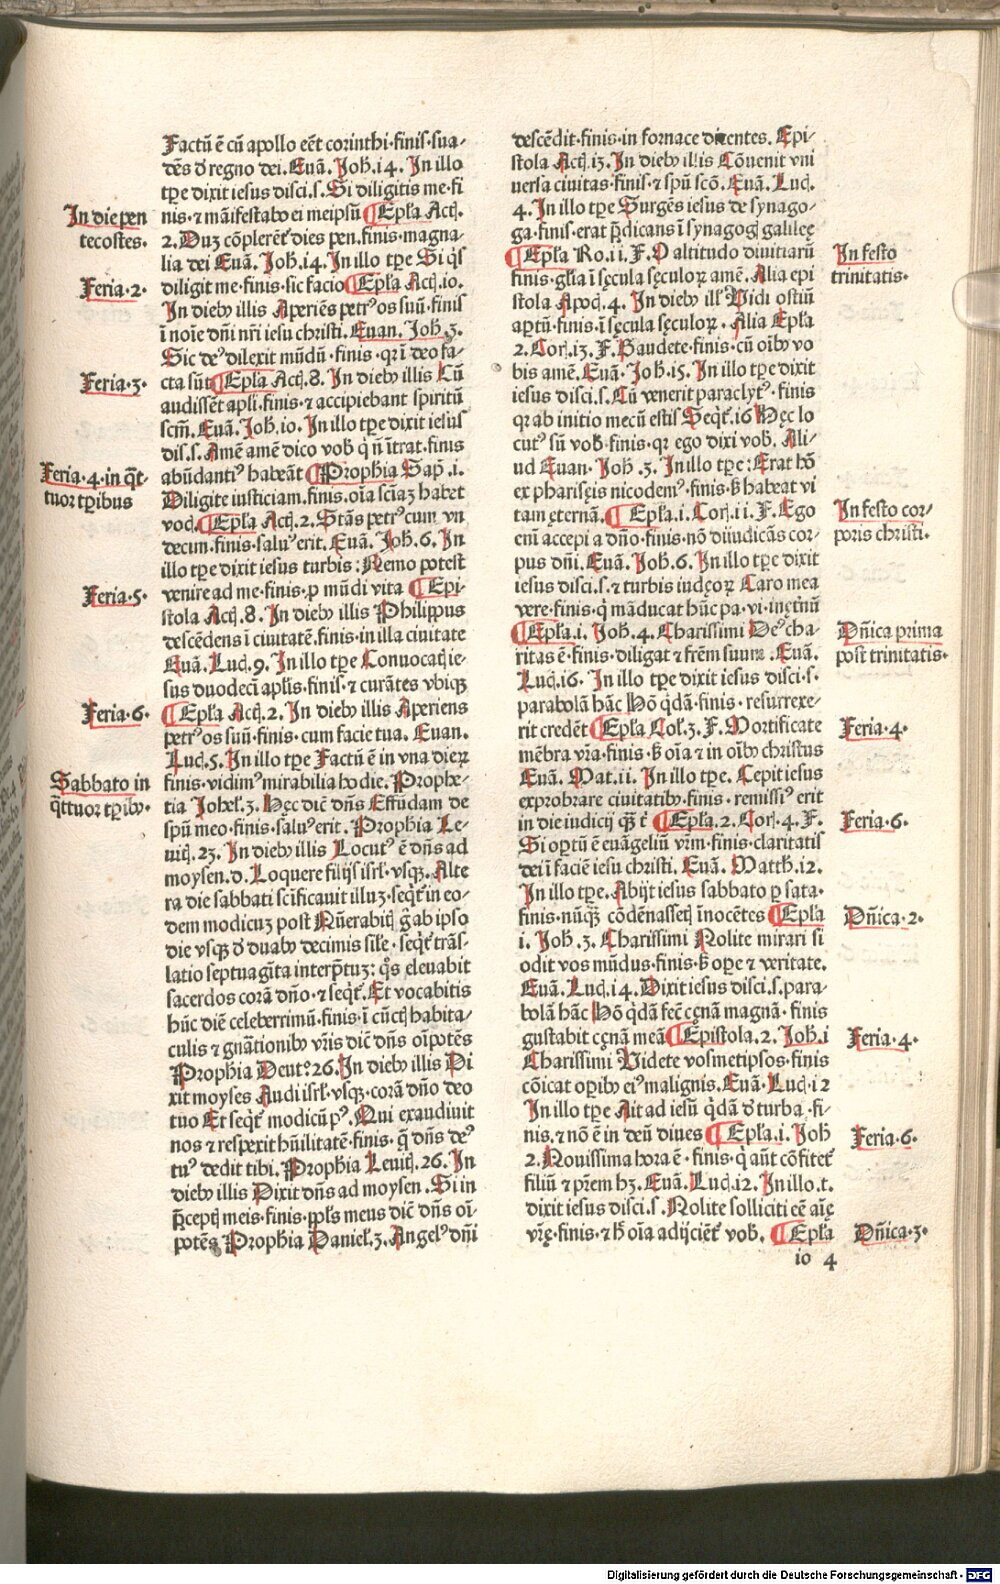 Factū ē cū apollo eēt corinthi·finis·sua⸗
dēs d̄ regno dei. Euā. Joh̄. 14. In illo
tꝑe dixit iesus disci.s. Si diligitis me·fi
In die pen
tecostes·
nis·⁊ māifestabo ei meipsū ¶ Epl̄a Act̄.
2. Duꝫ cōplerēt̄ dies pen.finis·magna⸗
lia dei Euā. Joh̄. 14. In illo tꝑe Si q̇s
Feria·2·
diligit me·finis·sic facio ¶ Epl̄a Act̄. 10.
In dieb⁹ illis Aperiēs petr⁹ os suū·finis
ī noīe dn̄i nr̄i iesu christi. Euan. Joh̄. 3.
Sic de⁹ dilexit mūdū·finis·qꝛ ī deo fa⸗
Feria·3·
cta sūt ¶ Epl̄a Act̄. 8. In dieb⁹ illis Cū
audissēt apl̄i·finis·⁊ accipiebant spiritū
scm̄. Euā. Joh̄. 10. In illo tꝑe dixit iesus
dis.s. Amē amē dico vob̄ q̄ nō ītrat.finis
Feria·4·in q̄t⸗
tuor tꝑibus
abūdanti⁹ habeāt ¶ Prophīa Sap̄. 1.
Diligite iusticiam.finis.oīa sciaꝫ habet
voc̄. ¶ Epl̄a Act̄. 2. Stās petr⁹ cum vn
decim·finis·salu⁹ erit. Euā. Joh̄. 6. In
illo tꝑe dixit iesus turbis: Nemo potest
Feria·5·
venire ad me·finis·ꝓ mūdi vita ¶ Epi⸗
stola Act̄. 8. In dieb⁹ illis Philippus
descēdens ī ciuitatē.finis·in illa ciuitate
Euā. Luc̄. 9. In illo tꝑe Conuocat̄ ie⸗
sus duodecī aplis.finis·⁊ curātes vbiqꝫ
Feria·6·
¶ Epl̄a Act̄. 2. In dieb⁹ illis Aperiens
petr⁹ os suū·finis·cum facie tua. Euan.
Luc̄. 5. In illo tꝑe Factū ē in vna dierꝝ
Sabbato in
q̄ttuor tꝑib⁹·
finis·vidim⁹ mirabilia hodie. Prophe⸗
tia Johel̄. 3. Hęc dic̄ dn̄s Effūdam de
spū meo·finis·salu⁹ erit. Prophīa Le⸗
uit̄. 23. In dieb⁹ illis Locut⁹ ē dn̄s ad
moysen.d. Loquere filijs isrl̄·vsqꝫ. Alte
ra die sabbati scīficauit illuꝫ·seqt̄ in eo⸗
dem modicuꝫ post Nūerabit̄ g̊ ab ipso
die vsqꝫ d̄ duab⁹ decimis sile·seqt̄ trās⸗
latio septuagīta interp̄tuꝫ: q̊s eleuabit
sacerdos corā dn̄o·⁊ seqt̄. Et vocabitis
hūc diē celeberrimū·finis·ī cūct̄ habita⸗
culis ⁊ gnātionib⁹ vr̄is dic̄ dn̄s oīpotēs
Prophīa Deut⁹. 26. In dieb⁹ illis Di
xit moyses Audi isrl̄·vsqꝫ·corā dn̄o deo
tuo Et seqt̄ modicū p⁹. Qui exaudiuit
nos ⁊ respexit hūilitatē·finis·q̄ dn̄s de⁹
tu⁹ dedit tibi. Prophīa Leuit̄. 26. In
dieb⁹ illis Dixit dn̄s ad moysen. Si in
p̄cept̄ meis·finis·ppl̄s meus dic̄ dn̄s oī⸗
potēs Prophīa Daniel̄. 3. Angel⁹ dn̄i
descēdit·finis·in fornace dicentes. Epi⸗
stola Act̄. 13. In dieb⁹ illis Cōuenit vni
uersa ciuitas·finis·⁊ spū scō. Euā. Luc̄.
4. In illo tꝑe Surgēs iesus de synago⸗
ga·finis·erat p̄dicans ī synagoḡ galileę
In festo
trinitatis·
¶ Epl̄a Ro. 11. F. O altitudo diuitiarū
finis·glīa ī sęcula sęculoꝝ amē. Alia epi
stola Apoc̄. 4. In dieb⁹ ill̄ Vidi ostiū
aꝑtū·finis·ī sęcula sęculoꝝ. Alia Epl̄a
2. Cor̄. 13. F. Gaudete·finis·cū oīb⁹ vo
bis amē. Euā. Joh̄. 15. In illo tꝑe dixit
iesus disci.s. Cū venerit paraclyt⁹·finis
qꝛ ab initio mecū estis Seqt̄. 16 Hęc lo
cut⁹ sū vob̄·finis·qꝛ ego dixi vob̄. Ali⸗
ud Euan. Joh̄. 3. In illo tꝑe: Erat hō
ex pharisęis nicodem⁹·finis·ꝫ habeat vi
In festo cor⸗
poris christi·
tam ęternā. ¶ Epl̄a. 1. Cor̄. 11. F. Ego
enī accepi a dn̄o·finis·nō diiudicās cor⸗
pus dn̄i. Euā. Joh̄. 6. In illo tꝑe dixit
iesus disci.s.⁊ turbis iudęoꝝ Caro mea
vere·finis·q̄ māducat hūc pa·vi·inętnū
Dn̄ica prima
post trinitatis·
¶ Epl̄a. 1. Joh̄. 4. Charissimi De⁹ cha⸗
ritas ē·finis·diligat ⁊ frēm suum. Euā.
Luc̄. 16. In illo tꝑe dixit iesus disci.s.
parabolā hāc Hō q̇dā·finis·resurrexe⸗
Feria·4·
rit credēt ¶ Epl̄a Col̄. 3. F. Mortificate
mēbra vr̄a·finis·ꝫ oīa ⁊ in oīb⁹ christus
Euā. Mat. 11. In illo tꝑe. Cepit iesus
exprobrare ciuitatib⁹·finis·remissi⁹ erit
Feria·6·
in die iudicij qꝫ t̄ ¶ Epl̄a. 2. Cor̄. 4. F.
Si oꝑtū ē euāgeliū vr̄m·finis·claritatis
dei ī faciē iesu christi. Euā. Matth. 12.
In illo tꝑe. Abijt iesus sabbato ꝑ sata·
Dn̄ica·2·
finis·nūqꝫ cōdēnasset̄ īnocētes ¶ Epl̄a
1. Joh̄. 3. Charissimi Nolite mirari si
odit vos mūdus·finis·ꝫ oꝑe ⁊ veritate.
Euā. Luc̄. 14. Dixit iesus disci.s.para⸗
bolā hāc Hō q̇dā fec̄ cęnā magnā·finis
Feria·4·
gustabit cęnā meā ¶ Epistola. 2. Joh̄. 1
Charissimi Videte vosmetipsos·finis
cōicat oꝑib⁹ ei⁹ malignis. Euā. Luc̄. 12
In illo tꝑe Ait ad iesū q̇dā d̄ turba·fi⸗
Feria·6·
nis.⁊ nō ē in deū diues ¶ Epl̄a. 1. Joh̄
2. Nouissima hora ē·finis·q̄ aūt cōfitet̄
filiū ⁊ pr̄em hꝫ. Euā. Luc̄. 12. In illo.t.
dixit iesus disci.s. Nolite solliciti eē aīę
Dn̄ica·3·
vr̄ę·finis·⁊ h̄ oīa adijciēt̄ vob̄. ¶ Epl̄a
10 4
Digitalisierung gefördert durch die Deutsche Forschungsgemeinschaft - DFG